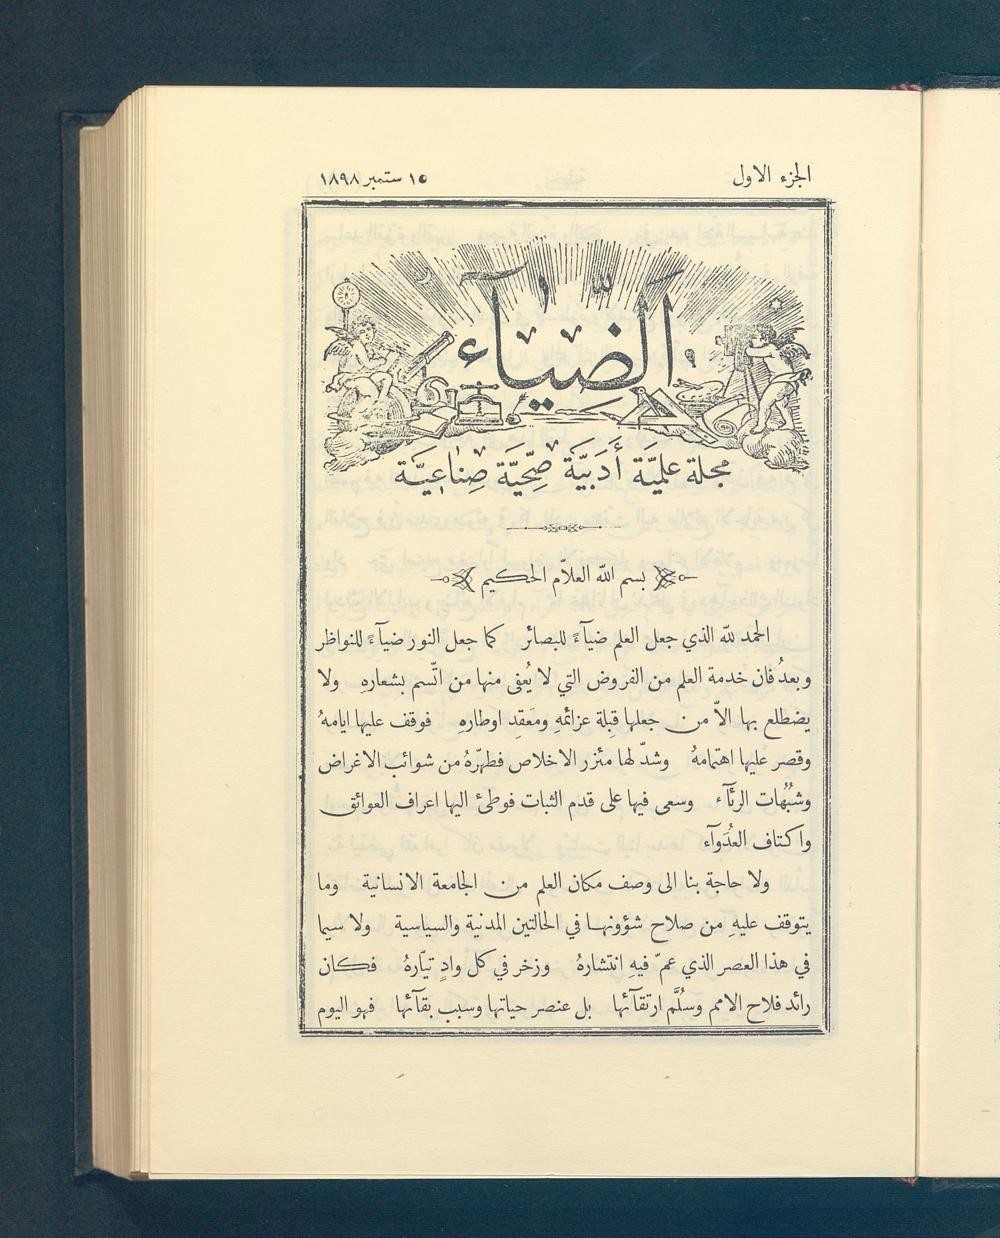 الجزء الاول ١٥ ستمبر ١٨٩٨
اَلضِيَآء
مجلة علميَّة أَدَبيَّة صِحّيَّة صِناعيَّة
بسم الله العلاّم الحكيم
الحمد لله الذي جعل العلم ضيآءً للبصائر كما جعل النور ضيآءً للنواظر
وبعدُ فان خدمة العلم من الفروض التي لا يُعفى منها من اتّسم بشعارهِ ولا
يضطلع بها الاّ من جعلها قِبلة عزائمهِ ومَعقِد اوطارهِ فوقف عليها ايامهُ
وقصر عليها اهتمامهُ وشدّ لها مئزر الاخلاص فطهّرهُ من شوائب الاغراض
وشُبُهات الرئآء وسعى فيها على قدم الثبات فوطئ اليها اعراف العوائق
واكتاف العُدَوآء
ولا حاجة بنا الى وصف مكان العلم من الجامعة الانسانية وما
يتوقف عليهِ من صلاح شؤونها في الحالتين المدنية والسياسية ولا سيما
في هذا العصر الذي عمّ فيهِ انتشارهُ وزخر في كل وادٍ تيّارهُ فكان
رائد فلاح الامم وسُلَّم ارتقآئها بل عنصر حياتها وسبب بقآئها فهو اليوم